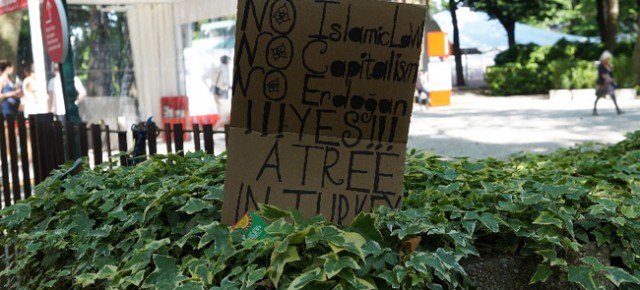 NO Islamic Law
NO Capitalism
NO Erdoğan
!!!YES!!!
A TREE
IN TURKEY